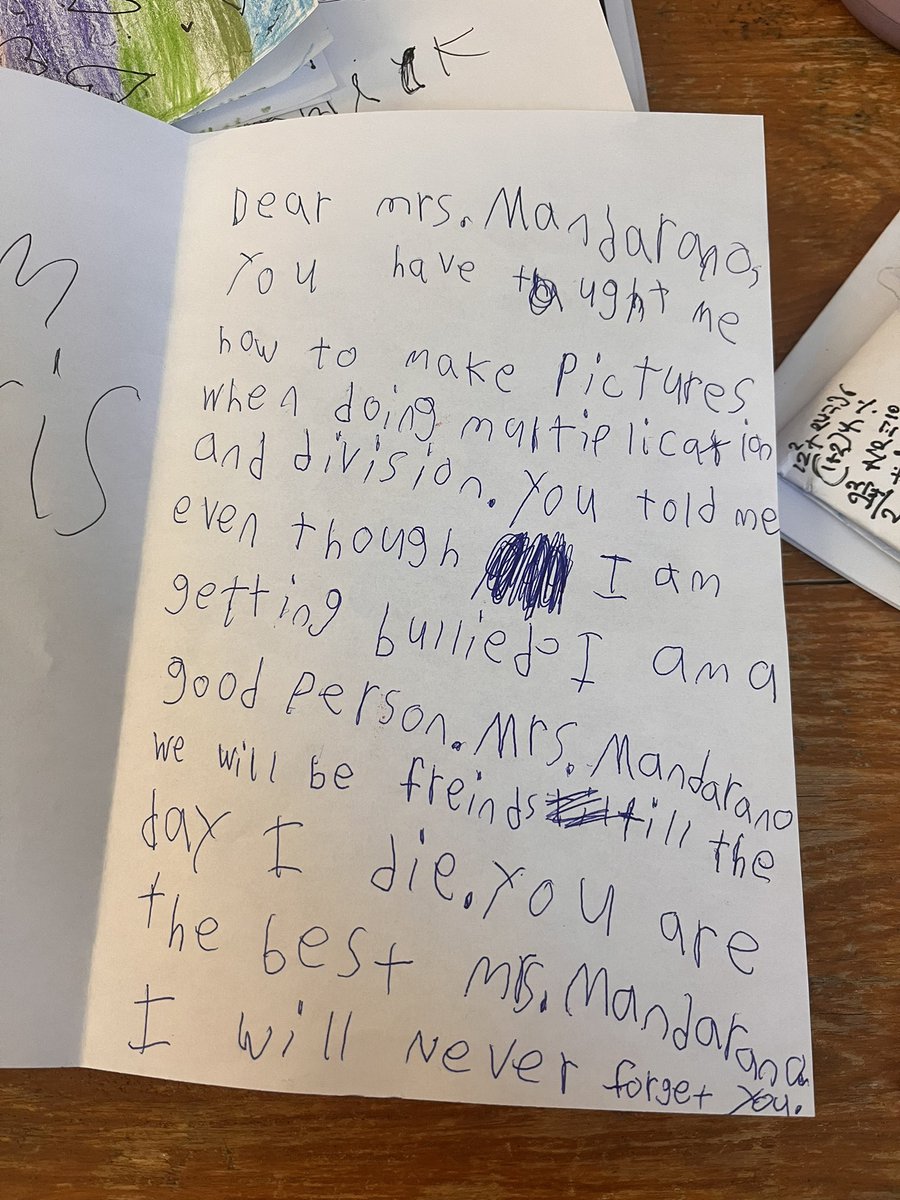 ink
m
is
Dear mrs. Mandarano,
You have tought me
how to make Pictures
when doing multiplication
and division. You told me
even though I am
getting bullied I am a
good person. Mrs. Mandarano
we will be freinds till the
day I die. You are
the best mrs. Mandarano
I will Never forget You.